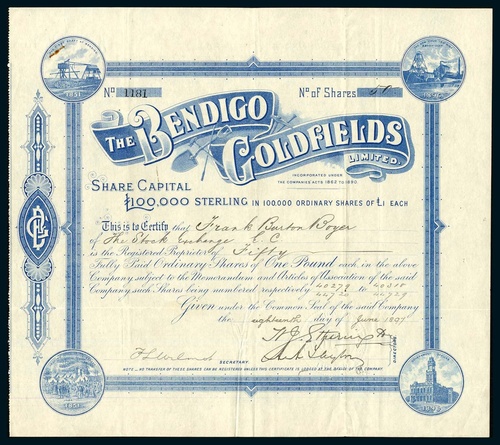 No 1181
No of Shares 50
THE BENDIGO
GOLDFIELDS
LIMITED.
INCORPORATED UNDER
THE COMPANIES ACTS 1862 TO 1890.
SHARE CAPITAL
£100,000 STERLING IN 100,000 ORDINARY SHARES OF £1 EACH
This is to Certify that Frank Burton Boyer
of The Stock Exchange E.C.
is the Registered Proprietor of Fifty
Fully Paid Ordinary Shares of One Pound each, in the above
Company subject to the Memorandum and Articles of Association of the said
Company, such Shares being numbered respectively 40279 to
Given under the Common Seal of the said Company
the eighteenth day of June 1897
SECRETARY.
DIRECTORS
NOTE :- NO TRANSFER OF THESE SHARES CAN BE REGISTERED UNLESS THIS CERTIFICATE IS LODGED AT THE OFFICE OF THE COMPANY
1851